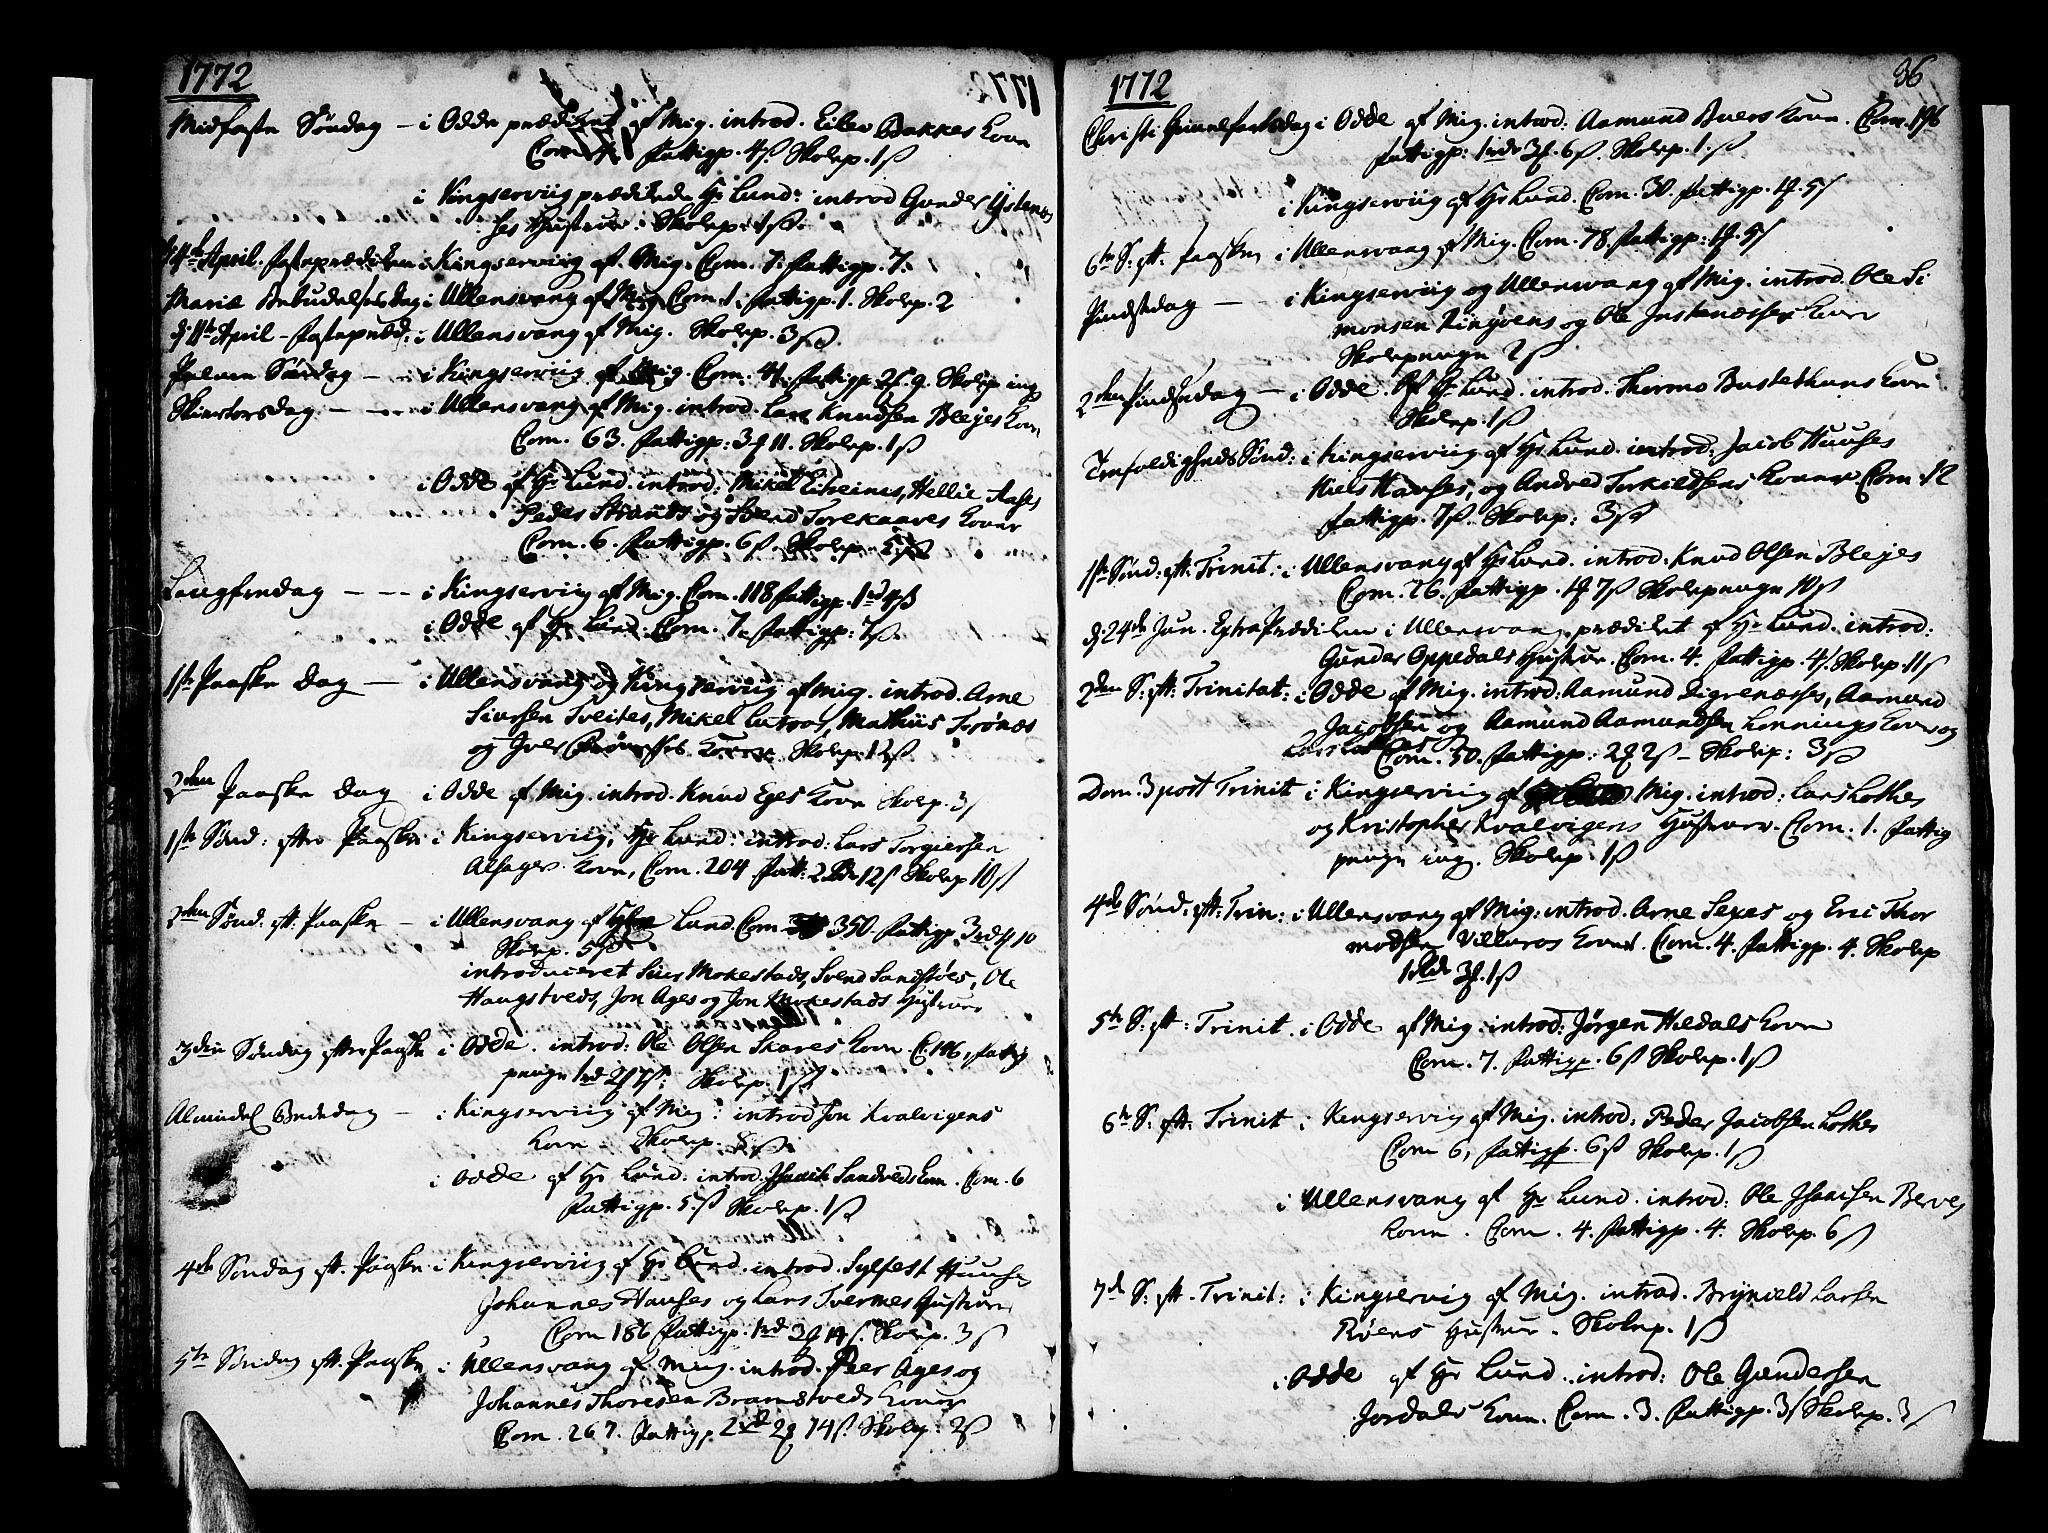 1772
Midfaste Søndag — i Odde prædiket af Mig. introd. Eilev Bakkes Kone
Com. 4. Fattigp. 4 ß Skolep. 1 ß
i Kingserviig prædikede Hr Lund: introd Gunder
Hustrue. Skolep. 1 ß.
April. Fasteprædiken i Kingserviig af Mig. Com. 7. Fattigp. 7.
Mariæ Bebudelses dag i Ullensvang af Mig Com. 1. Fattigp. 1. Skolep. 2
d. 11te April – Fastepræd: i Ullensvang af Mig. Skolep. 3 ß.
Palme Søndag — i Kingserviig af Mig. Com. 41. Fattigp. 2 ℳ. 9. Skolep ing
Skiertorsdag — i Ullensvang af Mig. introd. Lars Knudsen Blejes Kone
Com. 63. Fattigp: 3 ℳ 11. Skolep. 1 ß
i Odde af Hr Lund. introd: Mikel Eitreims, Hellie Aases
Peder Strands og Svend Torekaaves Koner
Com. 6. Fattigp. 6 ß. Skolep. 5 ß
Langfredag — — i Kingserviig af Mig. Com. 118 Fattigp. 1 rd 4 ß
i Odde af Hr Lund. Com. 7. Fattigp: 7 ß.
1ste Paaske Dag — i Ullensvang og Kingserviig af mig. introd. Arne
Siursen Tveites, Mikel Lutroes, Mathiis
og Iver Koner. Skolep: 12 ß.
2den Paaske Dag i Odde af Mig. introd. Knud Eges Kone Skolep. 3 ß
1ste Sønd: efter Paaske i Kingserviig, Hr Lund: introd: Lars Torgiersen
Alsager Kone, Com. 204. Fatt: 2 Rdr 12 ß Skolep 10 ß
2den Sønd: eft. Paaske — i Ullensvang af Lund. Com. 350. Fattigp. 3 rd 4 10
Skolep. 5 ß
introduceret Siur Mokestads, Svend Sandstøes, Ole
Haugstveds, Jon Ages og Jon Mokestads Hustruer
3die Søndag efter Paaske i Odde. introd: Ole Olsen Skares Kone C. 146, Fattig
penge 1 rd 2 ℳ 7 ß. Skolep. 1 ß
Almindel Bededag — i Kingserviig af Mig: introd Jon Kvalvigens
Kone. Skolep. 8 ß
i Odde af Hr Lund. introd. Sandveds Kone. Com. 6
Fattigp. 5. ß Skolep. 1 ß
4de Søndag eft. Paaske i Kingserviig af Hr Lund. introd. Sylfest Huuses
Johannes Hauses og Lars Tvermes Hustruer
Com 186 Fattigp. 1 rd 3 ℳ 14 ß. Skolep. 3 ß
5te Søndag eft. Paaske i Ullensvang af mig. introd. Peer Ages og
Johannes Thoresen Bramstveds Koner
Com. 267. Fattigp. 2 rd 2 ℳ 14 ß. Skolep. 2 ß
1772
36
Christi Himmelfartsdag i Odde af Mig. introd: Aamund Buers Kone. Com. 196
Fattigp: 1 rdr 3 ℳ. 6 ß. Skolep. 1 ß
i Kingserviig af Hr Lund. Com. 30. Fattigp. 1 ℳ. 5 ß
6te S: eft. Paaske i Ullensvang af Mig. Com. 78. Fattigp: 1 ℳ. 5 ß
Pindsedag — — i Kingserviig og Ullensvang af Mig. introd. Ole Si
monsen Ringøens og Ole Jestenæsses Koner
Skolepenge 2 ß
2den Pindsedag — i Odde. Af Hr Lund. introd. Thormo Bustethuns Kone
Skolep. 1 ß
Trefoldigheds Sønd: i Kingserviig af Hr Lund. introd: Jacob Huuses
Niels Hauses, og Andred Torkildsens Koner. Com. 12
Fattigp. 7 ß. Skolep: 3 ß
1ste Sønd: eft: Trinit: i Ullensvang af Hr Lund. introd: Knud Olsen Blejes
Com. 26. Fattigp. 1 ℳ 7 ß Skolepenge 10 ß
d: 24de Jun. Extra Prædiken i Ullensvang prædiket af Hr Lund. introd:
Gunder Oppedals Hustrue. Com. 4. Fattigp. 4 ß. Skolep. 11 ß
2den S: eft: Trinitat: i Odde af Mig. introd: Aamund Digrenæsses, Aamund
Jacobsen og Aamund Aamundsen Lønnings Koner og
Com. 50. Fattigp: 2 ℳ 2 ß – Skolep: 3 ß
Dom. 3 post Trinit i Kingserviig af Mig. introd: Lars Lothes
og Kristopher Kvalvigens Hustruer. Com. 1. Fattig
penge ing. Skolep. 1 ß
4de Sønd: eft: Trin: i Ullensvang af Mig: introd. Arne Sexes og Eric Thor
modsen Villures Koner. Com. 4. Fattigp. 4. Skolep
1 Rdr 3 ℳ. 1 ß
5te S: eft: Trinit. i Odde af Mig: introd: Jørgen Hildals Kone
Com. 7. Fattigp. 6 ß Skolep. 1 ß
6te S: eft: Trinit i Kingservig af Mig. introd: Peder Jacobsen Lothes
Com 6, Fattigp. 6 ß Skolep. 1 ß
i Ullensvang af Hr Lund. introd: Ole Isaacsen Berves
Kone. Com. 4. Fattigp. 4. Skolep. 6 ß
7de S: eft. Trinit: i Kingservig af Mig. introd. Brynield Larsen
Røens Hustrue. Skolep. 1 ß
i Odde af Hr Lund. introd: Ole Gundersen
Jordals Kone. Com. 3. Fattigp. 3 ß Skolep. 3 ß